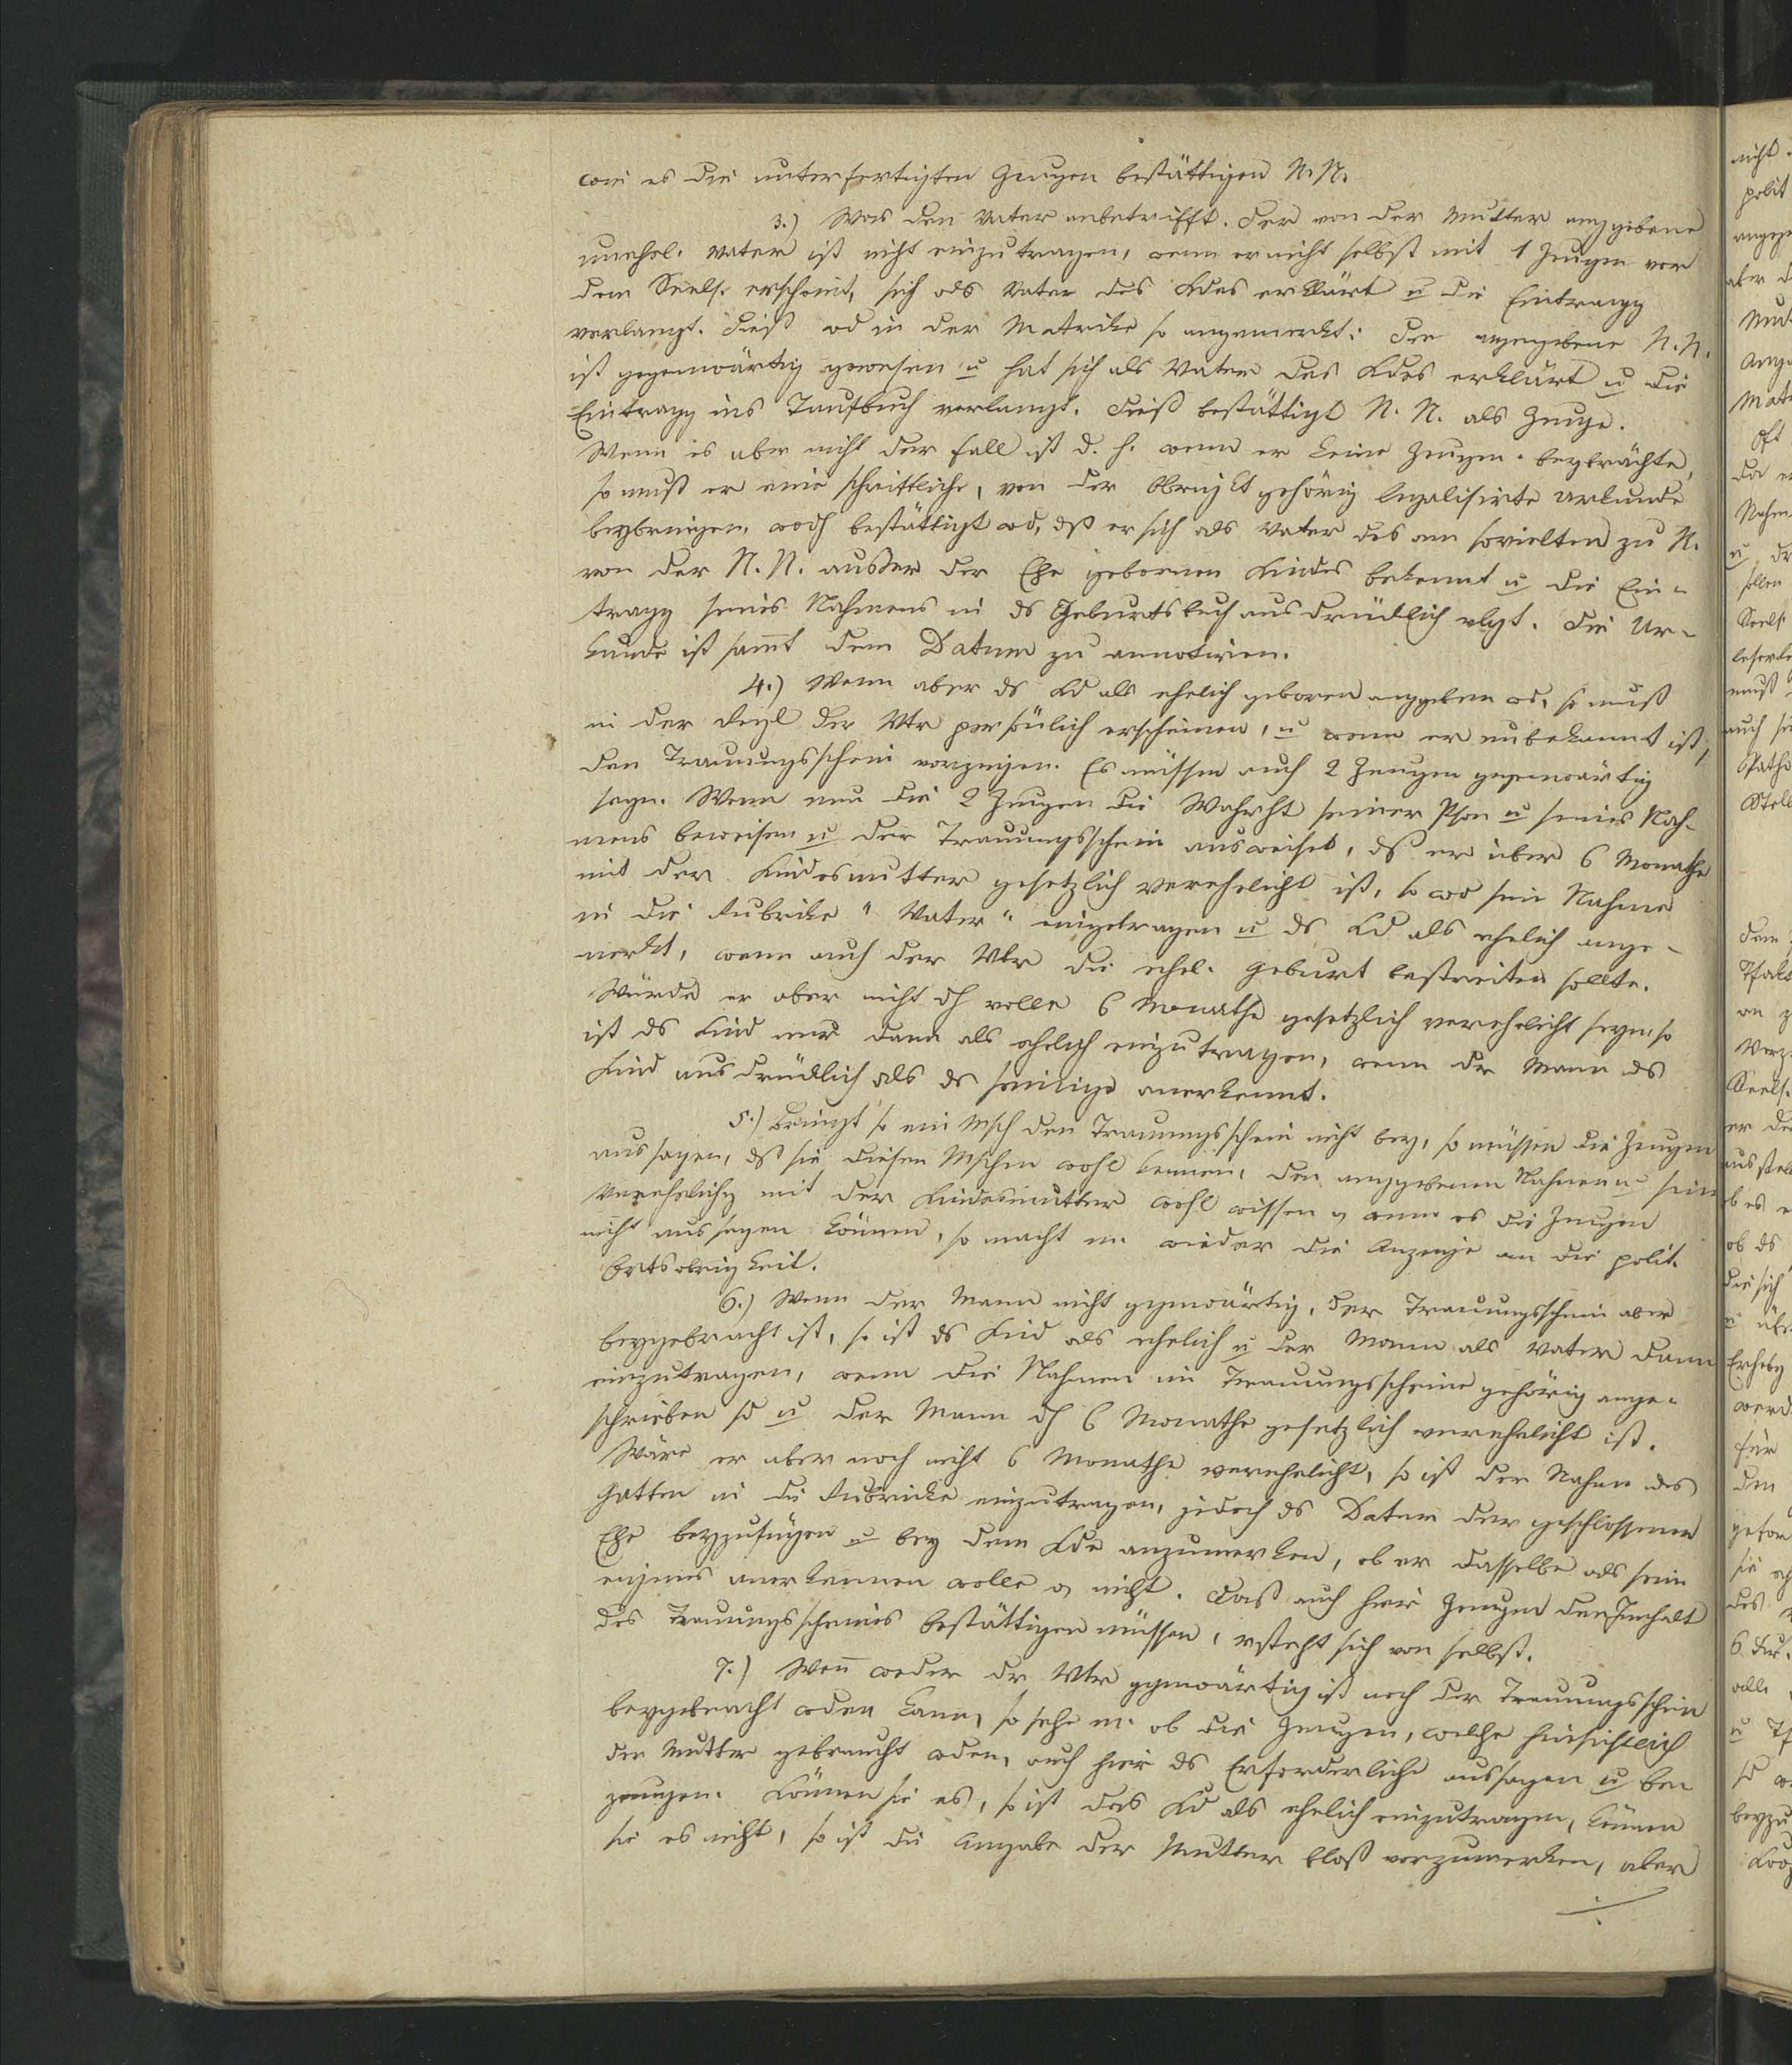 wie es die unterfertigten Zeugen bestättigen N. N.
3.) Was den Vater anbetrifft. Der von der Mutter anggebene
unehel. Vater ist nicht einzutragen, wenn er nicht selbst mit 1 Zeugen vor
dem Seels. erscheint, sich als Vater des Kdes erklärt u die Eintragg
verlangt. Dieß wd in der Matrike so angemerkt: Der angegebene N. N.
ist gegenwärtig gewesen u hat sich als Vater des Kdes erklärt u die
Eintragg ins Taufbuch verlangt. Dieß bestättigt N. N. als Zeuge.
Wenn es aber nicht der Fall ist d. h. wenn er keine Zeugen beybrächte,
so muß er eine schriftliche, von der Obrigkt gehörig legalisirte Urkunde
beybringen, wodh bestättigt wd, dß er sich als Vater des am sovielten zu N.
von der N. N. außer der Ehe gebornen Kindes bekennt u die Ein-
tragg seines Nahmens in ds Geburtsbuch ausdrücklich vlgt. Die Ur-
kunde ist sammt dem Datum zu annotiren.
4.) Wenn aber ds Kd als ehelich geboren anggeben wd, so muß
in der Regl der Vtr persönlich erscheinen, u wenn er unbekannt ist,
den Trauungsschein vorzeigen. Es müssen auch 2 Zeugen gegenwärtig
seyn. Wenn nun die 2 Zeugen die Wahrht seiner Pson u seines Nah-
mens beweisen u der Trauungsschein ausweiset, dß er über 6 Monathe
mit der Kindesmutter gesetzlich verehelicht ist, so wd sein Nahme
in die Rubrike "Vater" eingetragen u ds Kd als ehelich ange-
merkt, wenn auch der Vtr die ehel. Geburt bestreiten sollte.
Würde er aber nicht dh volle 6 Monathe gesetzlich verehelicht seyn, so
ist ds Kind nur dann als ehelich einzutragen, wenn dr Mann ds
Kind ausdrücklich als ds seinige anerkennt.
5.) Bringt so ein Msch den Trauungsschein nicht bey, so müssen die Zeugen
aussagen, dß sie diesen Mschen wohl kennen, den anggebenen Nahmen u sein
Verehelichg mit der Kindesmutter wohl wissen wenn es die Zeugen
nicht aussagen können, so macht m. wieder die Anzeige an die polit.
Ortsobrigkeit.
6.) Wenn der Mann nicht ggenwärtig, der Trauungsschein aber
beygebracht ist, so ist ds Kind als ehelich u der Mann als Vater dann
einzutragen, wenn die Nahmen im Trauungsscheine gehörig ange-
schrieben sd u der Mann dh 6 Monathe gesetzlich verehelicht ist.
Wäre er aber noch nicht 6 Monathe verehelicht, so ist der Nahme des
Gatten in die Rubricke einzutragen, jedoch ds Datum der geschlossenen
Ehe beyzufügen u bey dem Kde anzumerken, ob er dasselbe als sein
eigenes anerkennen wolle o. nicht. Daß auch hier Zeugen den Innhalt
des Trauungsscheines bestättigen müssen, vsteht sich von selbst.
7.) Wen̄ weder dr Vtr ggenwärtig ist noch der Trauungsschein
beygebracht wden kann, so sehe m. ob die Zeugen, welche hinsichtlich
der Mutter gebraucht wden, auch hier ds Erforderliche aussagen u be-
zeugen. Können sie es, so ist das Kd als ehelich einzutragen, können
sie es nicht, so ist die Angabe der Mutter bloß vorzumerken, aber